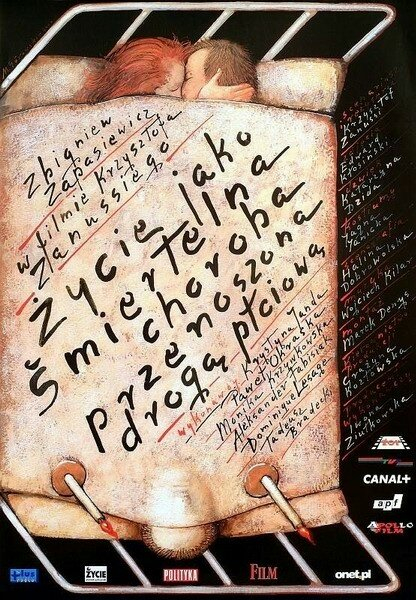 Zbigniew
Zapasiewicz
w filmie Krzysztofa
Zanussiego
Życie jako
śmiertelna
choroba
przenoszona
drogą płciową
wykonawcy Krystyna Janda
Paweł Okraska
Monika Krzywkowska
Aleksander Fabisiak
Dominique Lesage
Tadeusz
Bradecki
Krzysztof
Zanussi
Edward
Kłosiński
Jagna
Janicka
Halina
Dobrowolska
Wojciech Kilar
Marek Denys
Grażyna
Kozłowska
Iwona
Ziułkowska
TV
CANAL+
apf
APOLLO
FILM
ŻYCIE
POLITYKA
FILM
onet.pl